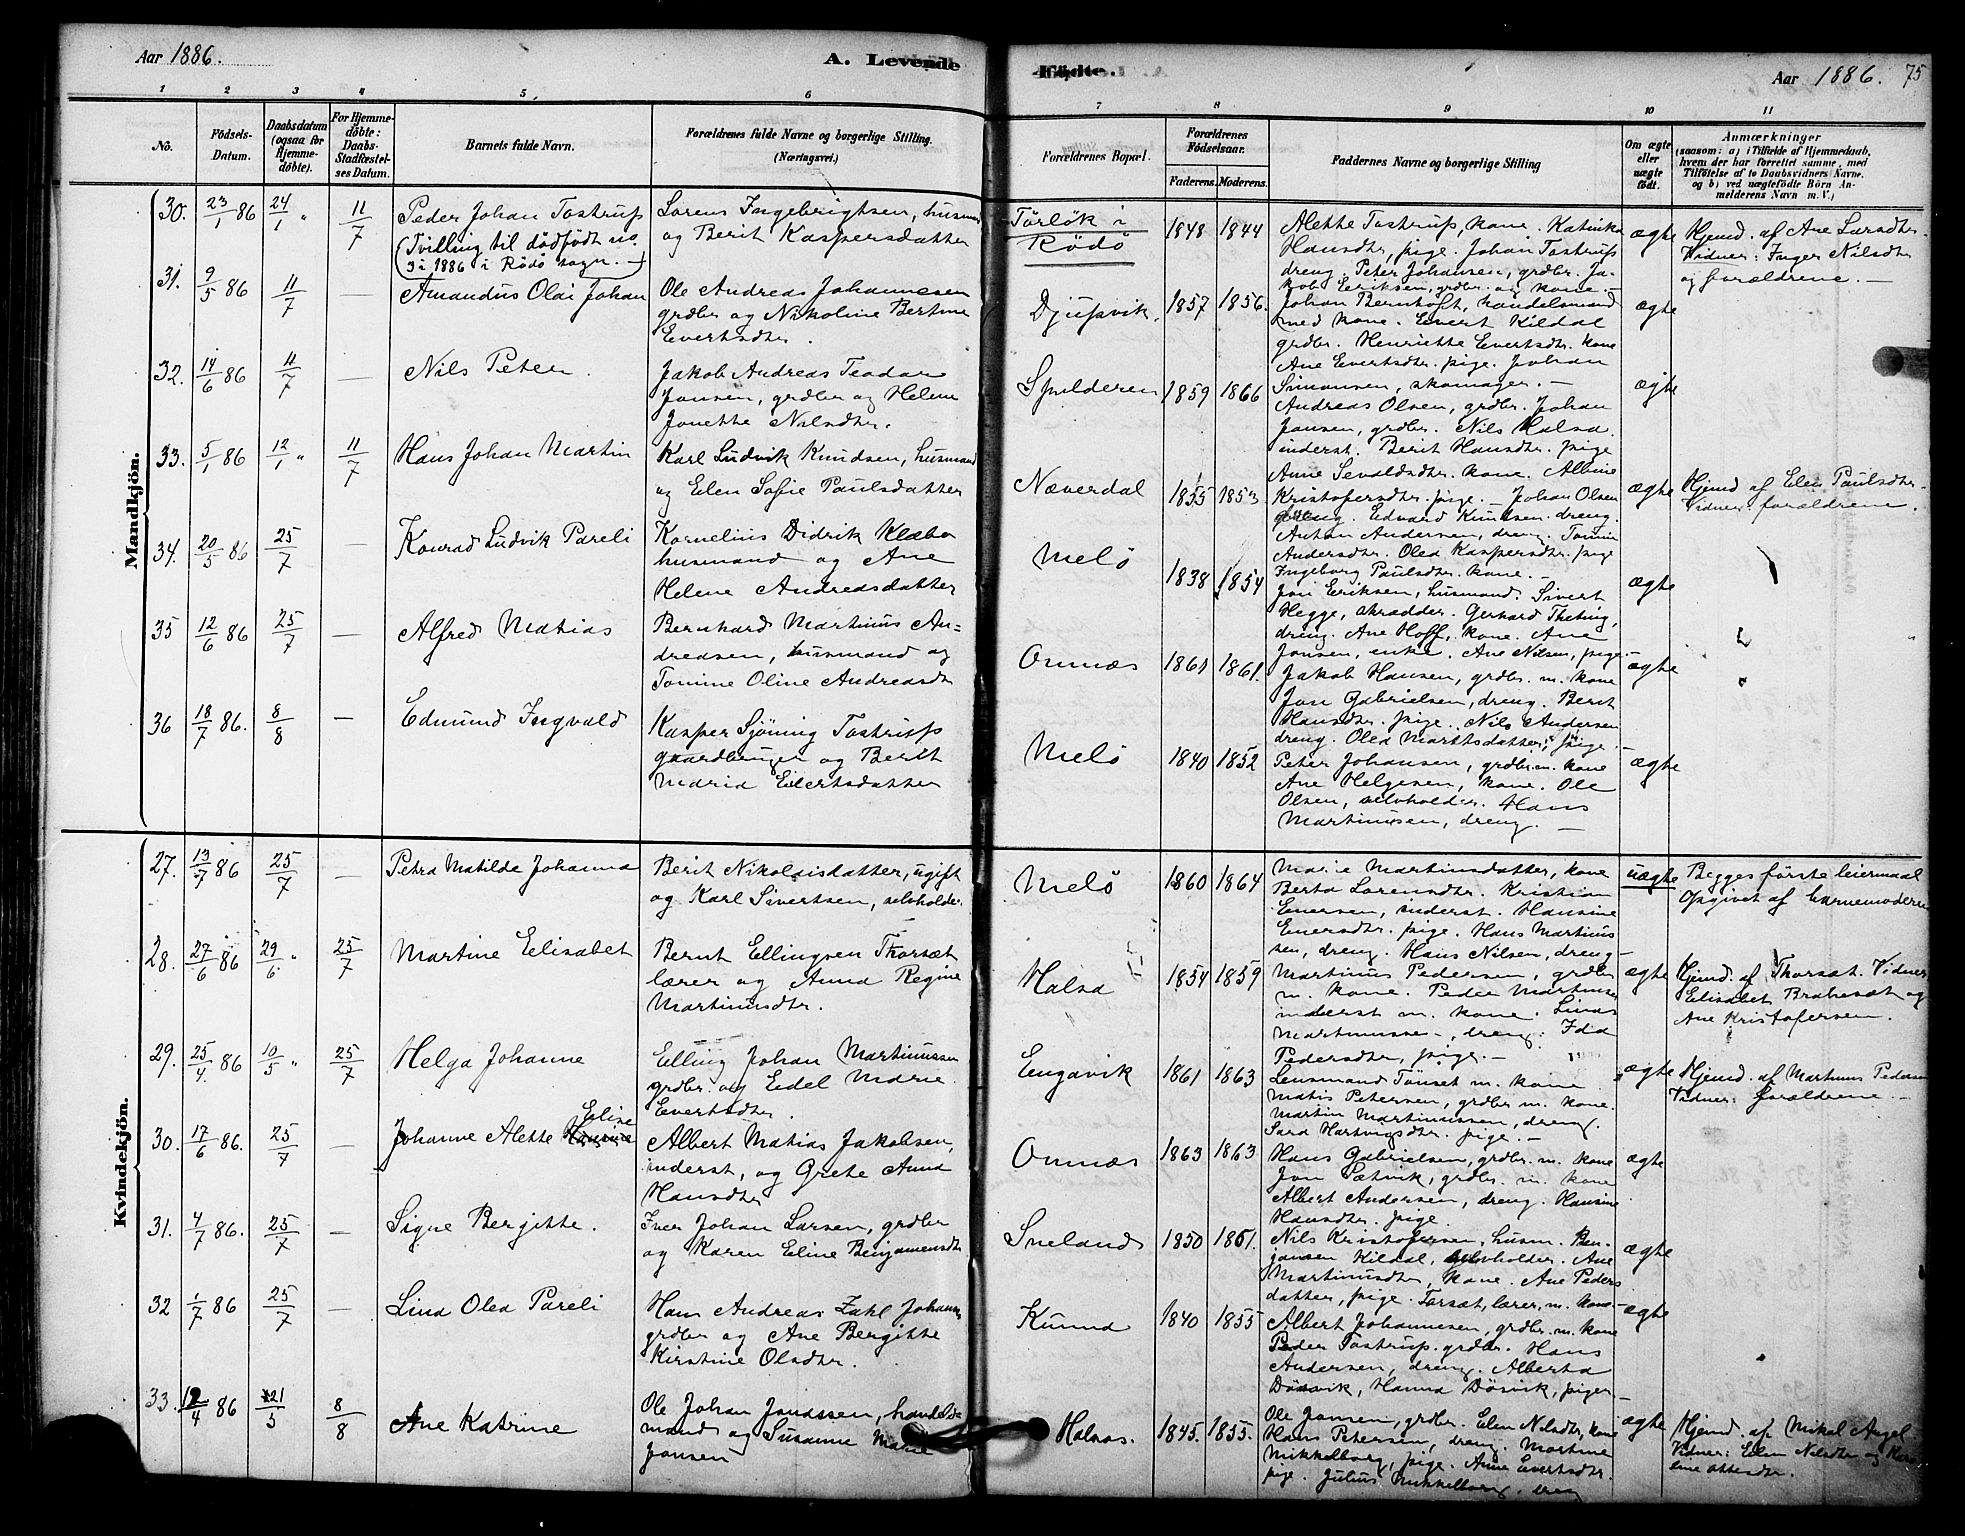 Aar 1886.
A. Levende
Fødte.
Aar 1886. 75
1 2 3 4 5 6 7 8 9 10 11
No.
Fødsels-
Datum.
Daabsdatum
(ogsaa for
Hjemme-
døbte).
For Hjemme-
døbte:
Daabs-
Stadfæstel-
ses Datum.
Barnets fulde Navn.
Forældrenes fulde Navne og borgerlige Stilling.
(Næringsvei.)
Forældrenes Bopæl.
Forældrenes
Fødselsaar.
Faderens. Moderens.
Faddernes Navne og borgerlige Stilling
Om ægte
eller
uægte
født.
Anmærkninger
(saasom: a) i Tilfælde af Hjemmedaab,
hvem der har forrettet samme, med
Tilføielse af to Daabsvidners Navne,
og b) ved uægtefødte Børn An-
melderens Navn m. V.)
Mandkjön.
30. 23/1 86 24/1 " 11/7
Peder Johan Tostrup
(Tvilling til dødfødt no.
3 i 1886 i Rødø sogn. —)
Sørens Ingebrigtsen, husm
og Berit Kaspersdatter
Tørløk i
Rödö
1848 1844
Alette Tostrup, kone. Katinka
Hansdtr, pige. Johan Tostrup
dreng. Peter Johansen, grdbr. Ja-
kob Eriksen, grdbr. og kone. —
ægte
Hjemd. af Ane Larsdtr.
Vidner: Inger Nilsdtr
og forældrene. —
31. 9/5 86 11/7 —
Amandus Olai Johan
Ole Andreas Johannesen
grdbr og Nikoline Bertine
Evertsdtr.
Djupvik.
1857 1856.
Johan Bernhoft, handelsmand
med kone. Evert Kildal
grdbr. Henriette Evertsdtr. kone
Ane Evertsdtr. pige. Johan
Simonsen, skomager. —
ægte
32. 14/6 86 11/7 —
Nils Peter
Jakob Andreas Teodor
Jonsen, grdbr og Helene
Jonette Nilsdtr.
Spilderen
1859 1866
Andreas Olsen, grdbr. Johan
Jansen, grdbr. Nils Halsa
inderst. Berit Hansdtr. pige
ægte
33. 5/1 86 12/1 " 11/7
Hans Johan Martin
Karl Ludvik Knudsen, husmand
og Elen Sofie Paulsdatter
Næverdal
1855 1853
Anne Sevaldsdtr. kone. Albine
Kristofersdtr. pige. — Johan Olsen
dreng. Edvard Knudsen. dreng.
ægte
Hjemd af Elen Paulsdtr.
Vidner: forældrene.
34. 20/5 86 25/7 —
Konrad Ludvik Pareli
Kornelius Didrik Klæbo
husmand og Ane
Helene Andreasdatter
Melö
1838 1854
Anton Andersen, dreng. Tomin
Andersdtr. Olea Kaspersdtr. pige
Ingeborg Paulsdtr. kone. —
Jon Eriksen, husmand. Sivert
Hegge, skrædder. Gerhard Theting,
ægte
35 12/6 86 25/7 —
Alfred Matias
Bernhard Martinus An-
dreasen, husmand og
Tomine Oline Andreasdt
Ornnæs
1861 1861.
dreng. Ane Hoff, kone. Ane
Jonsen, enke. Ane Nilsen, pige —
Jakob Hansen, grdbr. m. kone
Jon Gabrielsen, dreng. Berit
ægte
36 18/7 86. 8/8 —
Edmund Ingvald
Kasper Sjöning Tostrup
gaardbruger og Berit
Maria Eilertsdatter
Melö
1840 1852
Hansdtr. pige. Nils Andersen
dreng. Olea Martisdatter, pige. —
Peter Johansen, grdbr. m. kone
Ane Helgesen, kone. Ole
Olsen, selvholder. Hans
Martinusen, dreng. —
ægte
Kvindekjön.
27. 13/7 86 25/7 —
Petra Matilde Johanna
Berit Nikolaisdatter, ugift
og Karl Sivertsen, selvholder
Melö
1860 1864
Marie Martinusdatter, kone
Berta Sørensdtr. Kristian
Enersen, inderst. Hansine
Enersdtr. pige. Hans Martinus
sen, dreng. Hans Nilsen, dreng —
uægte
Begges første leiermaal
Opgivet af barnemoderen
28. 27/6 86 29/6 " 25/7
Martine Elisabet
Bernt Ellingsen Thorsæt
lærer og Anna Regine
Martinusdtr.
Halsa
1854 1859
Martinus Pedersen, grdbr
m. kone. Peder Martinus
inderst m. kone. Linds
Martinussen, dreng. Ida
Pedersdtr, pige. —
ægte
Hjemd. af Thorsæt. Vidner
Elisabet Brabesæt og
Ane Kristofersen.
29. 25/4. 86 10/5 " 25/7
Helga Johanne
Elling Johan Martinussen
grdbr. og Eidel Marie
Evertsdtr.
Engavik
1861 1863
Lensmand Tönset m. kone
Matis Petersen, grdbr m. kone.
Martin Martinussen, dreng.
Sara Hartvigsdtr. pige. —
ægte
Hjemd. af Martinus Pedersen
Vidner: forældrene —
30. 17/6 86. 25/7 —
Eline
Johanne Alette Hansina
Albert Matias Jakobsen,
inderst, og Grete Anna
Hansdtr
Ornnæs
1863 1863
Hans Gabrielsen, grdbr. m. kone
Jon Sætvik, grdbr. m. kone
Albert Andersen, dreng. Hansine
Hansdtr. pige.
ægte
31. 4/7 86. 25/7 —
Signe Bergitte.
Iver Johan Larsen, grdbr
og Karen Eline Benjaminsdtr
Sneland
1850 1851.
Nils Kristofersen, husm. Ben-
jamsen Kildal, selvholder. Ane
Martinusdtr, kone. Ane Peders
datter, pige. Torsæt, lærer, m. kone —
ægte
32 1/7 86 25/7 —
Lina Olea Pareli
Hans Andreas Zahl Johann
grdbr og Ane Bergitte
Kirstine Olsdtr.
Kunna
1840 1855
Albert Johannesen, grdbr. m. kone
Peder Tostrup. grdbr. Hans
Andersen, dreng. Alberta
Dösvik, Hanna Dösvik, piger. —
ægte
33. 12/4 86 21/5 8/8
Ane Katrine
Ole Johan Jonassen, handels-
mand og Susanne Marie
Jonsen
Halsos.
1845. 1855.
Ole Jonsen, grdbr. Elen Nilsdtr, kone
Hans Petersen, dreng. Martine
Mikkelborg, pige. Anne Evertsdtr.
pige. Julius Mikkelborg. dreng
ægte
Hjemd. af Mikal Angel
Vidner: Elen Nilsdtr og Karo
line Ottesdtr.